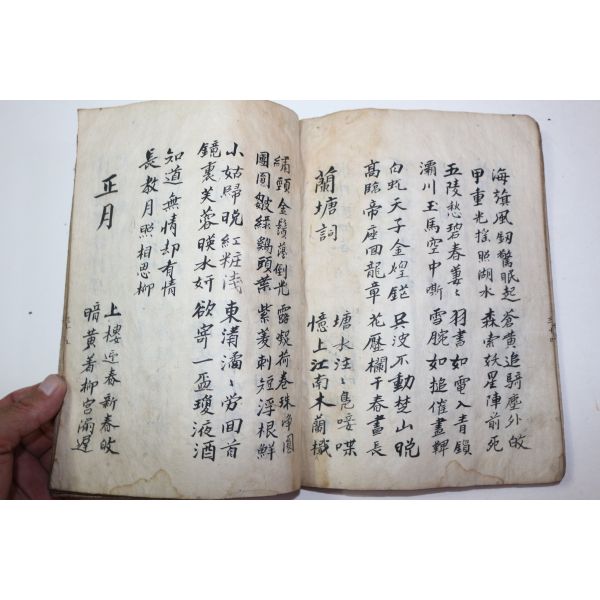 海旗風驚眠起 蒼黃追騎塵外皈
甲重光搖照湖水 森索妖星陣前死
五陵愁碧春萋〻 羽書如電入青鎖
灞川玉馬空中嘶 雪腕如搥催畫鞞
白虬天子金煌鋩 吳波不動楚山晩
高臨帝座回龍章 花壓欄干春晝長
蘭塘詞
塘水汪〻鳧唼喋
憶上江南木蘭檝
繡頸金鬚蕩倒光 露凝荷卷珠淨圓
團圓皺綠鷄頭葉 紫菱刺短浮根鮮
小姑歸晚紅粧淺 東溝潏〻勞回首
鏡裏芙蓉暎水奸 欲寄一盃瓊液酒
知道無情却有情
長教月照相思柳
正月
上樓迎春新春皈
暗黃着柳宮漏遲